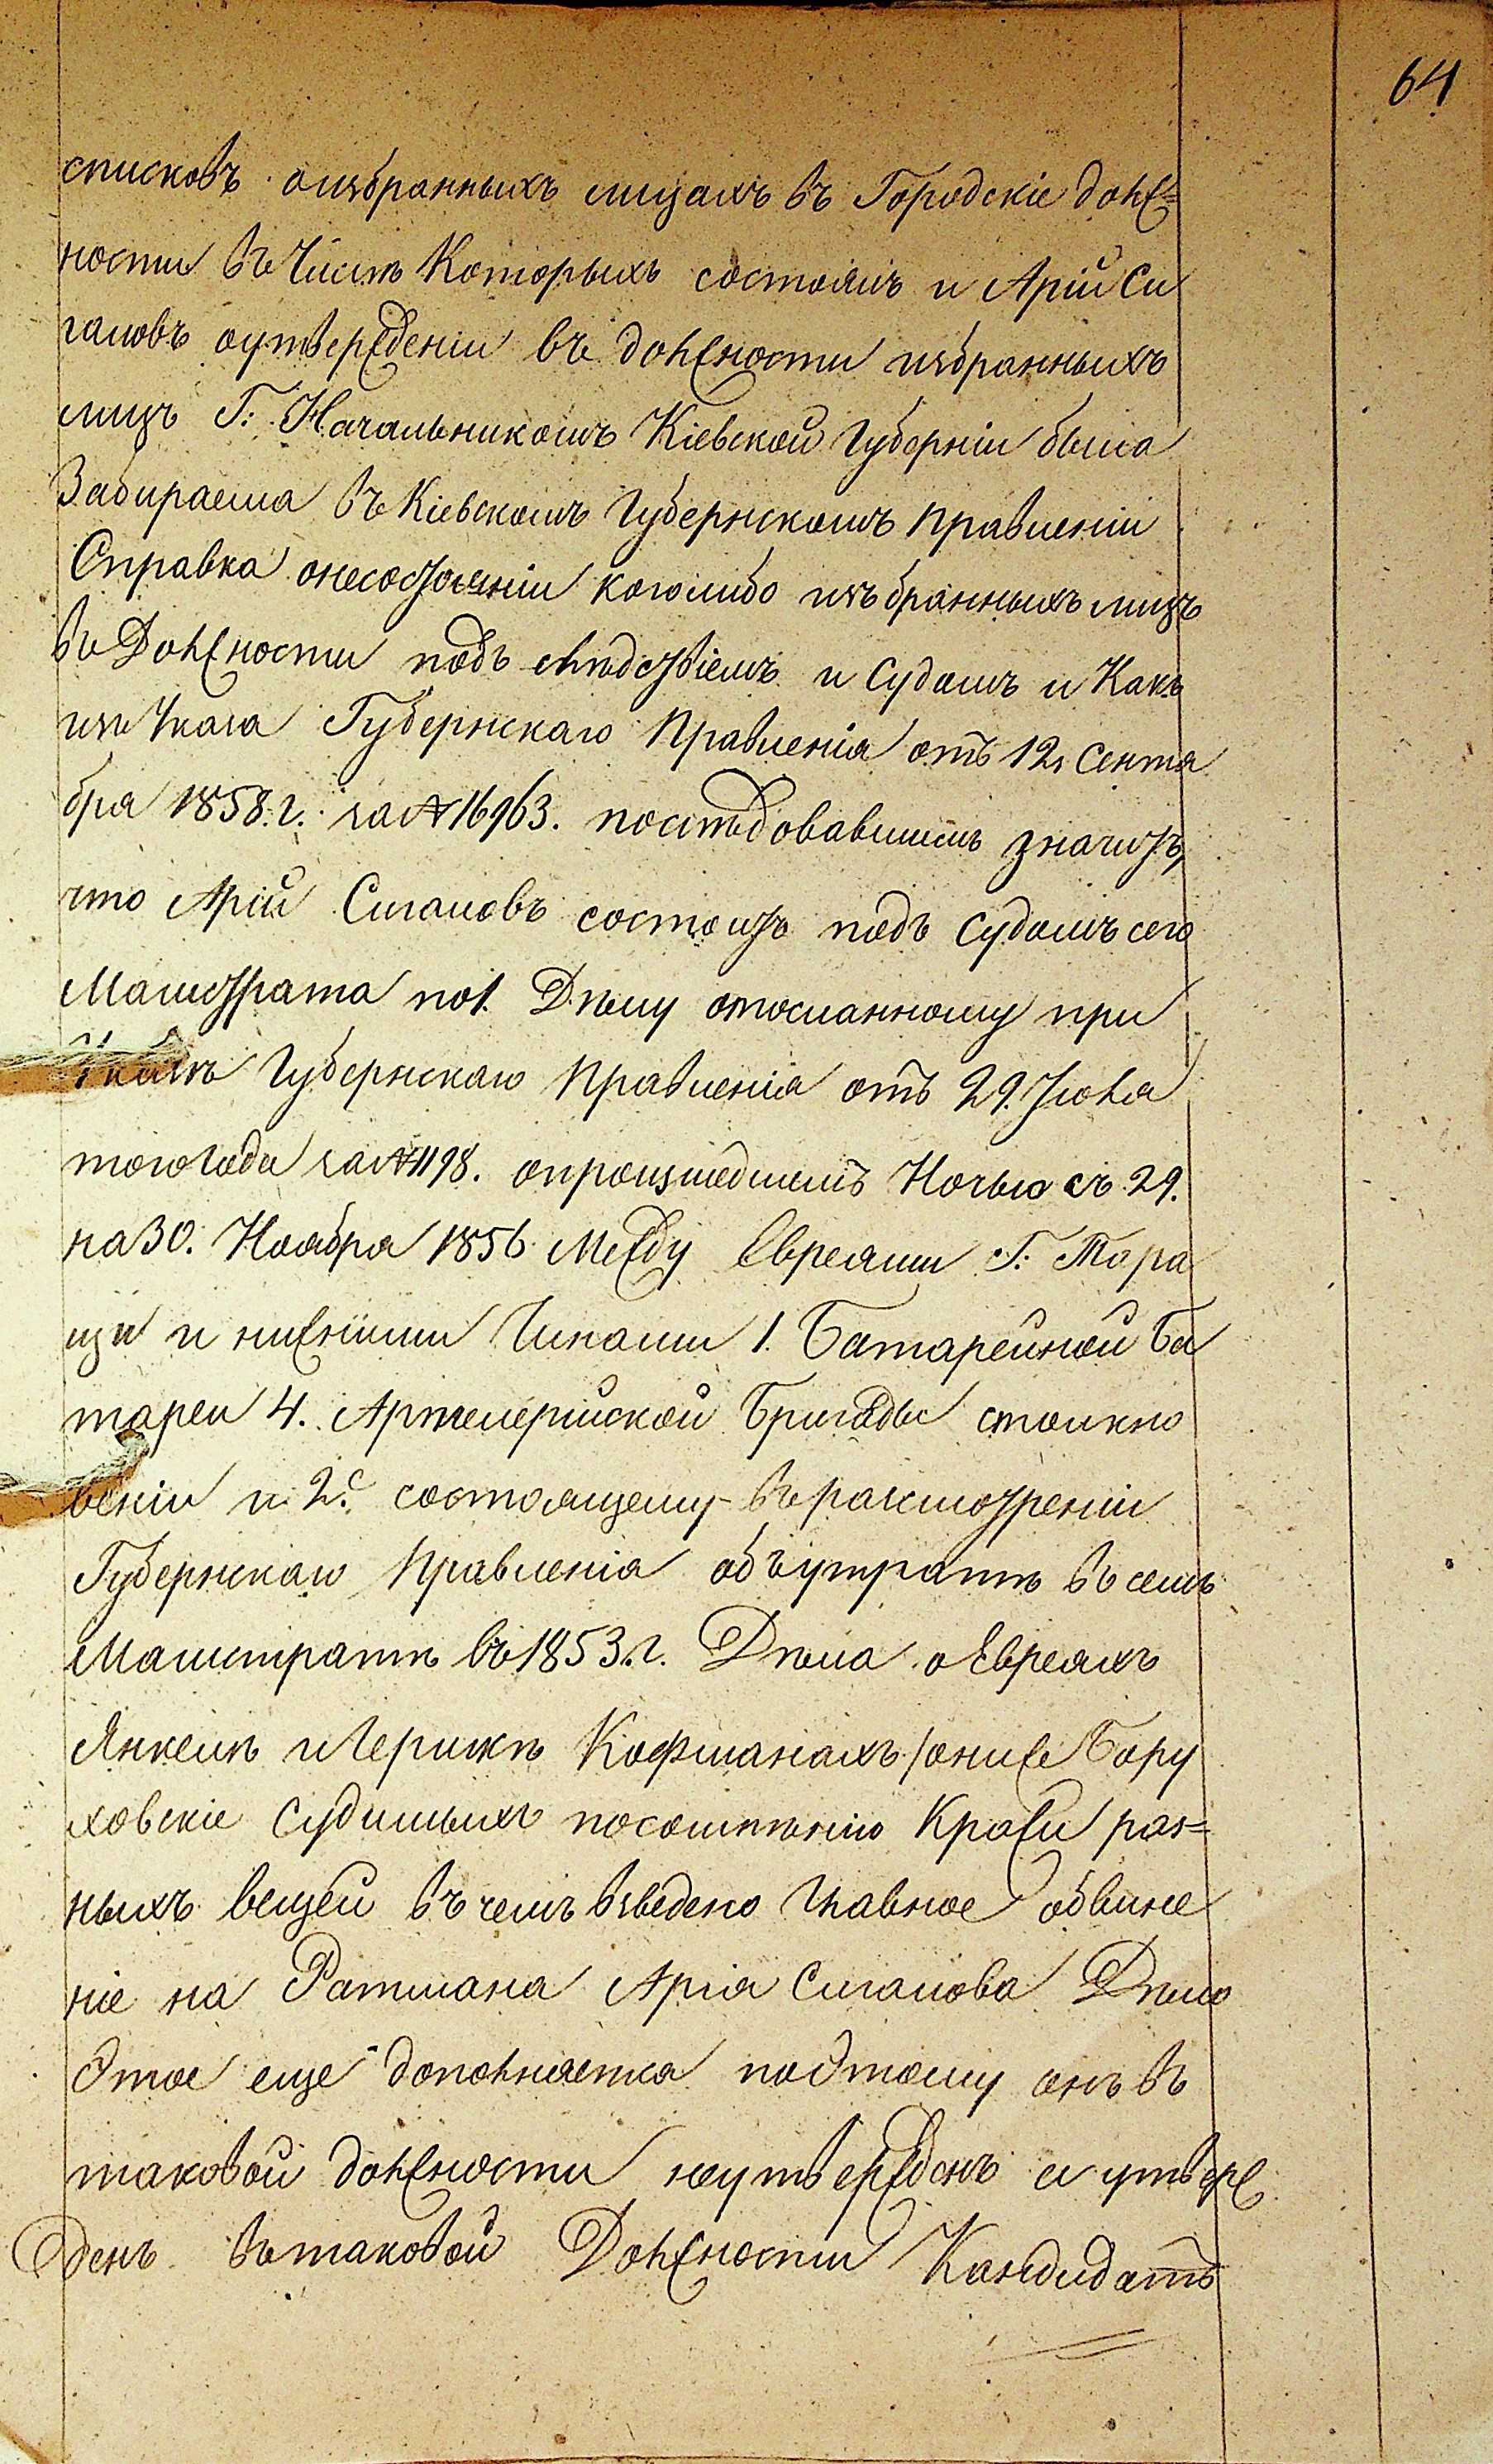 64
списковъ о избранныхъ лицахъ въ Городскіе долж=
ности въ Числѣ Которыхъ состоялъ и Арій Си
галовъ о утвержденіи въ должности избранныхъ
лицъ Г: Начальникомъ Кіевской Губерніи была
Забираема въ Кіевскомъ Губернскомъ Правленіи
Справка о несостоянiи коголибо изъбранныхъ лицъ
въ Должности подъ слѣдствіемъ и Судомъ и Какъ
изъ Указа Губернскаго Правленія отъ 12 Сентя
бря 1858.г. за №16963. послѣдовавшемъ значитъ,
что Арій Сигаловъ состоитъ подъ Судомъ сего
Магистрата по 1. Дѣлу отосланному при
Указѣ Губернскаго Правленія отъ 29. Июля
того года за №1198. о произшедшемъ Ночью съ 29.
на 30. Ноября 1856 Между Евреями Г: Тара
щи и нижними Чинами 1. Батарейной Ба
тареи 4. Артилерийской Бригады столкно
веніи и 2е. состоящему въ разсмотреніи
Губернскаго Правленія объ утратѣ въ семъ
Магистратѣ въ 1853.г. Дѣла о Евреяхъ
Янкелѣ и Гершкѣ Кофманахъ /они же Бору
ховскіе Судимыхъ по сомнѣнію Кражи раз=
ныхъ вещей въ чемъ взведено главное обвине
ніе на Ратмана Арія Сигалова Дѣло
Этое еще дополняется поэтому онъ въ
таковой должности неутвержденъ а утверж
денъ въ таковой Должности Кандидатъ